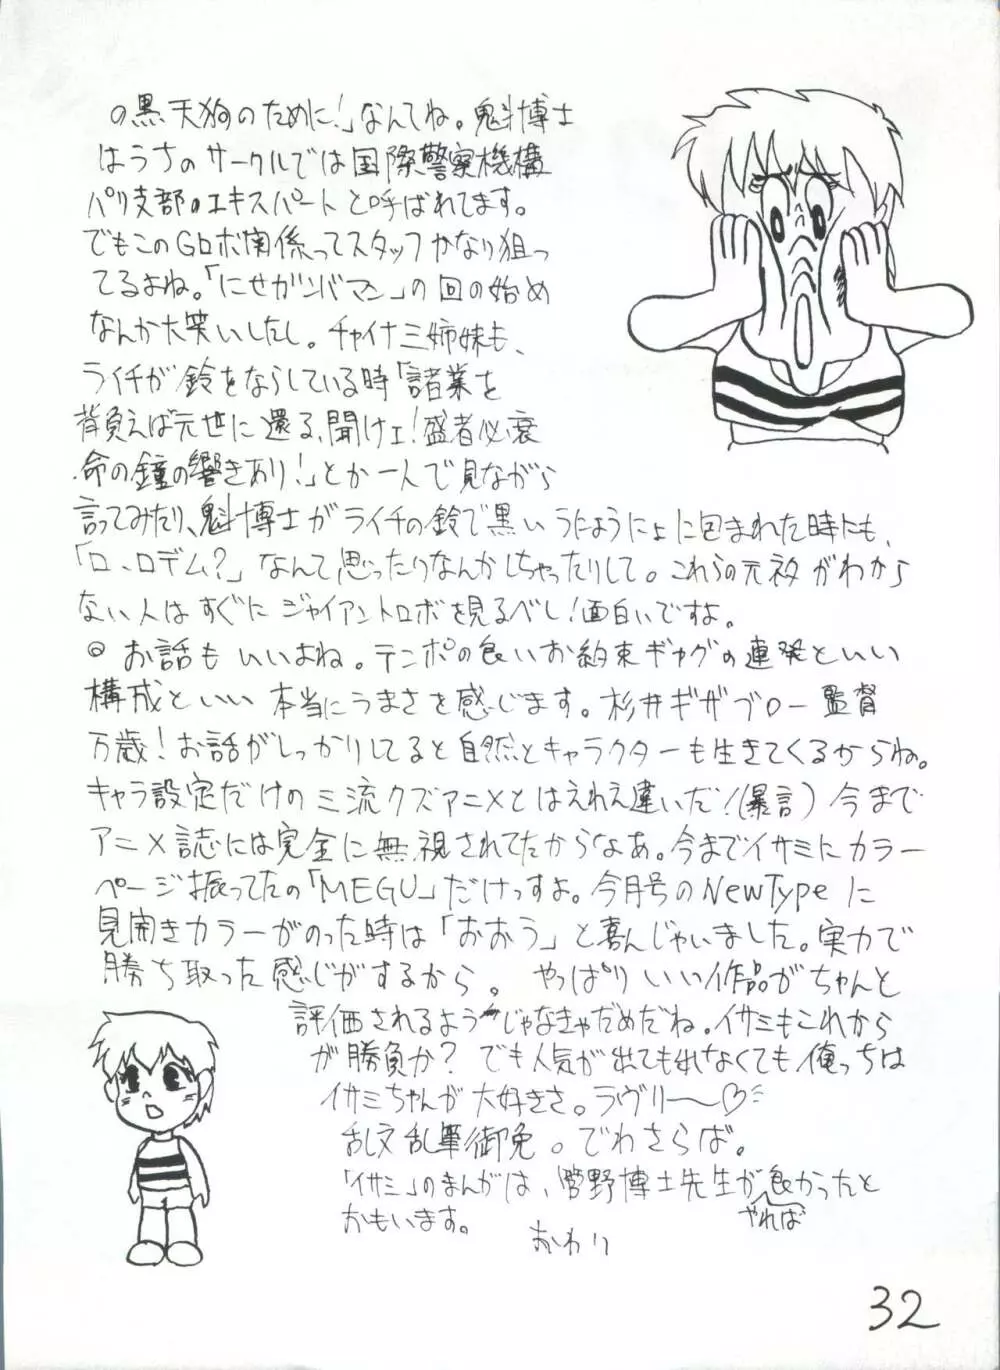 の黒天狗のために!」なんてね。魁博士
はうちのサークルでは国際警察機構
パリ支部のエキスパートと呼ばれてます。
でもこのGロボ関係ってスタッフかなり狙っ
てるよね。「にせガンバマン」の回の始め
なんか大笑いしたし。チャイナ三姉妹も、
ライチが鈴をならしている時「諸業を
背負えば元世に還る、聞けェ!盛者必衰
命の鐘の響きあり!」とか一人で見ながら
言ってみたり、魁博士がライチの鈴で黒いうにょうにょに包まれた時にも、
「ロ、ロデム?」なんて思ったりなんかしちゃったりして。これらの元ネタがわから
ない人はすぐにジャイアントロボを見るべし!面白いですよ。
◎お話もいいよね。テンポの良いお約束ギャグの連発といい
構成といい本当にうまさを感じます。杉井ギサブロー監督
万歳!お話がしっかりしてると自然とキャラクターも生きてくるからね。
キャラ設定だけの三流クズアニメとはえれえ違いだ!(暴言)今まで
アニメ誌には完全に無視されてたからなあ。今までイサミにカラー
ページ振ってたの「MEGU」だけっすよ。今月号のNewTypeに
見開きカラーがのった時は「おおう」と喜んじゃいました。実力で
勝ち取った感じがするから。やっぱりいい作品がちゃんと
評価されるようじゃなきゃだめだね。イサミもこれから
が勝負か?でも人気が出ても出なくても俺っちは
イサミちゃんが大好きさ。ラヴリ〜♡
乱文乱筆御免。でわさらば。
「イサミ」のまんがは、菅野博士先生が良かったと
やれば
かもいます。
おわり
32